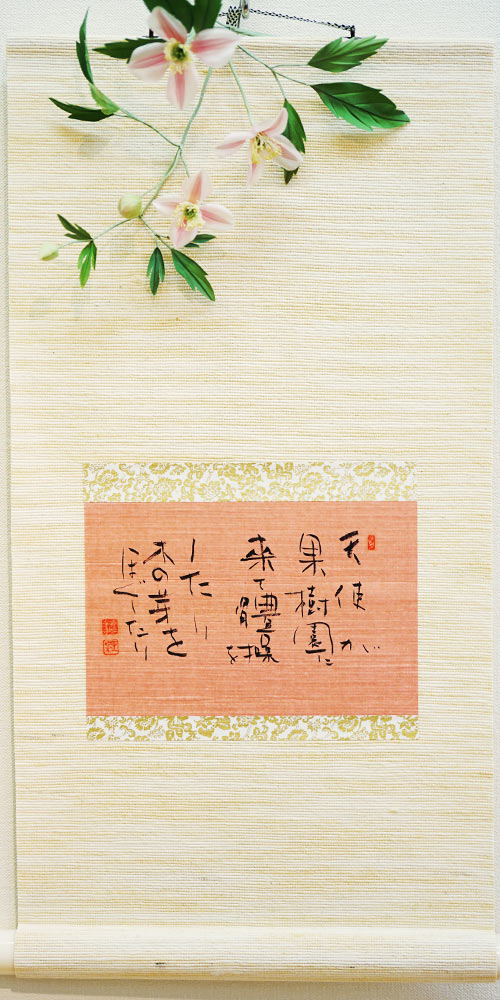 天使が
果樹園に
来て體操を
したり
木の芽を
ほぐしたり